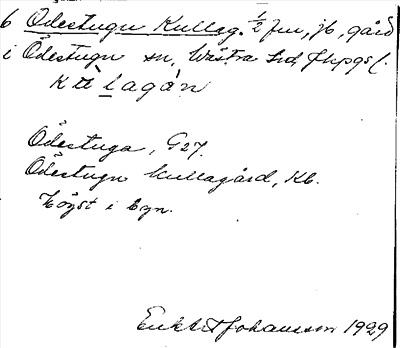 6 Ödestugu Kullag. 1/2 fm, jb, gård
i Ödestugu sn, Västra hd, Jkpgs l.
Ödestuga, G27.
Ödestugu Kullagård, Kb.
Högst i byn.
Johansson 1929